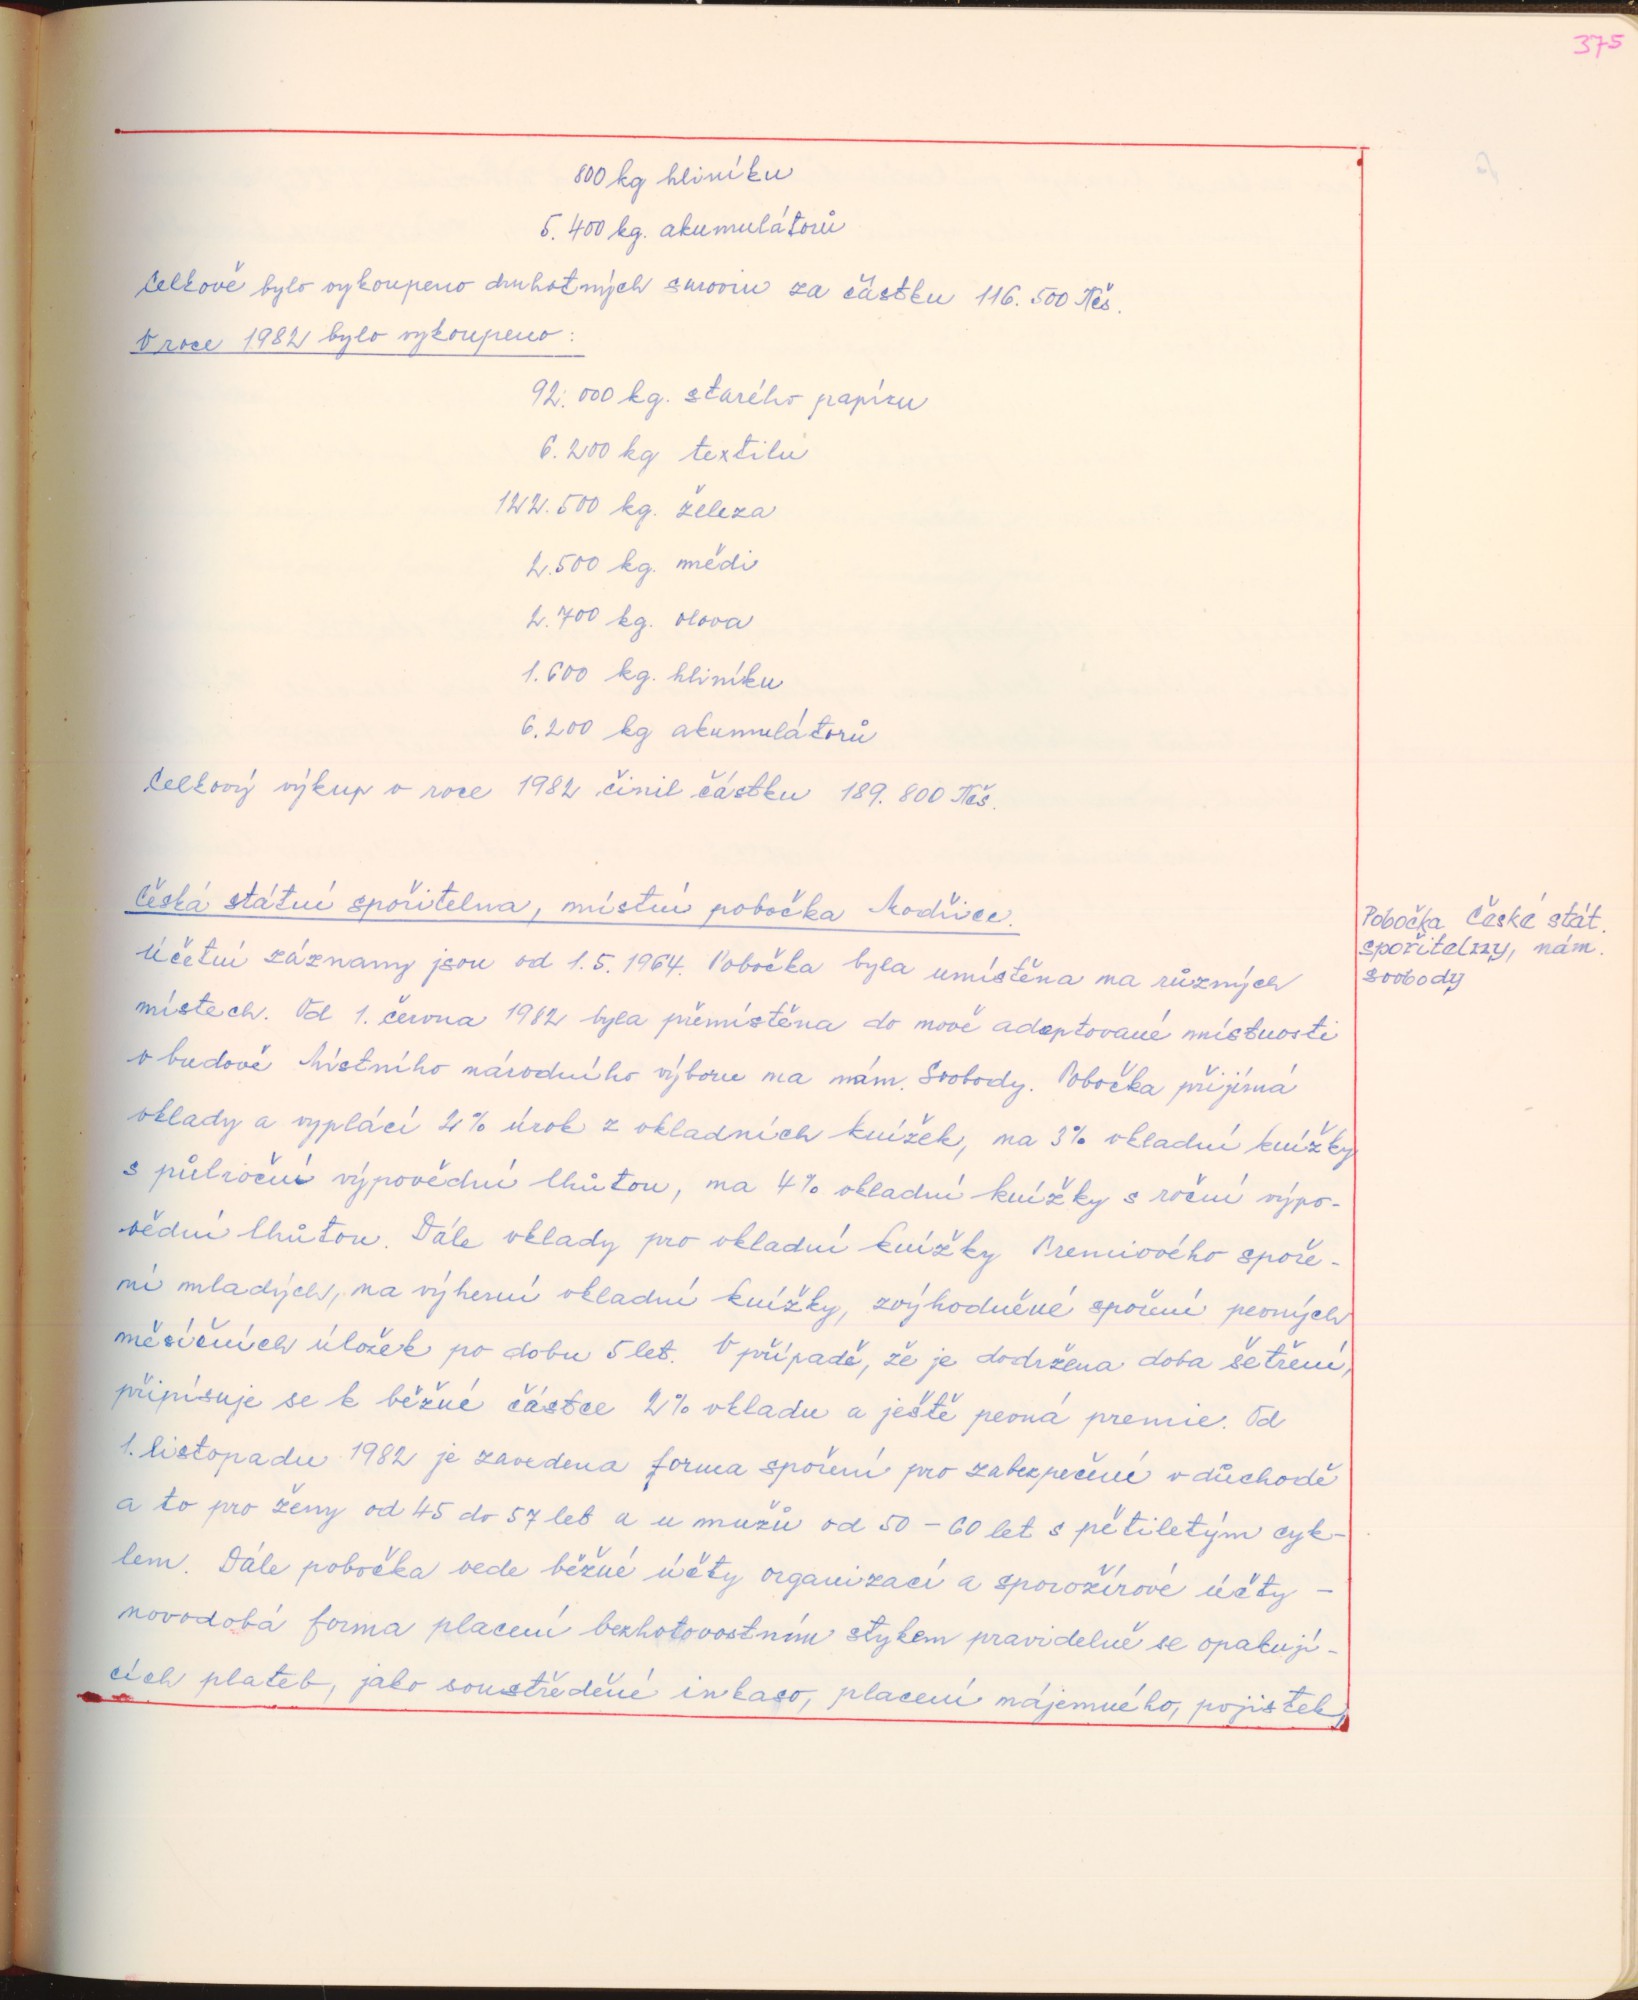 375
800 kg hliníku
5.400 kg. akumulátorů
Celkově bylo vykoupeno druhotných surovin za částku 116.500 Kčs.
V roce 1982 bylo vykoupeno:
92.000 kg. starého papíru
6.200 kg textilu
122.500 kg. železa
2.500 kg. mědi
2.700 kg. olova
1.600 kg. hliníku
6.200 kg akumulátorů
Celkový výkup v roce 1982 činil částku 189.800 Kčs.
Česká státní spořitelna, místní pobočka Modřice.
Pobočka České stát.
spořitelny, nám.
Svobody
Účetní záznamy jsou od 1.5.1964. Pobočka byla umístěna na různých
místech. Od 1. června 1982 byla přemístěna do nově adaptované místnosti
v budově Místního národního výboru na nám. Svobody. Pobočka přijímá
vklady a vyplácí 2% úrok z vkladních knížek, na 3% vkladní knížky
s půlroční výpovědní lhůtou, na 4% vkladní knížky s roční výpo-
vědní lhůtou. Dále vklady pro vkladní knížky Premiového spoře-
ní mladých, na výherní vkladní knížky, zvýhodněné spoření pevných
měsíčních úložek po dobu 5 let. V případě, že je dodržena doba šetření,
připisuje se k běžné částce 2% vkladu a ještě pevná premie. Od
1. listopadu 1982 je zavedena forma spoření pro zabezpečení v důchodě
a to pro ženy od 45 do 57 let a u mužů od 50 - 60 let s pětiletým cyk-
lem. Dále pobočka vede běžné účty organizací a sporožirové účty -
novodobá forma placení bezhotovostním stykem pravidelně se opakují-
cích plateb, jako soustředěné inkaso, placení nájemného, pojistek,